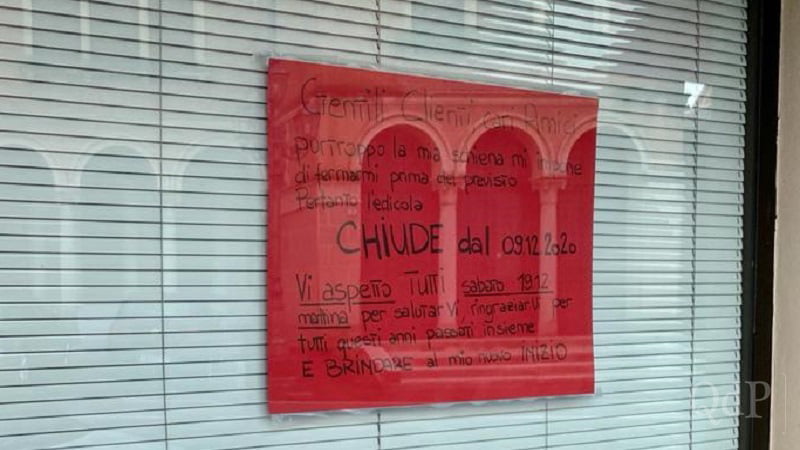 Gentili Clienti, cari Amici
purtroppo la mia schiena mi impone
di fermarmi prima del previsto
Pertanto l'edicola
CHIUDE dal 09.12.2020
Vi aspetto TUTTI sabato 19.12
mattina per salutarVi, ringraziarVi per
tutti questi anni passati insieme
E BRINDARE al mio nuovo INIZIO
QdP